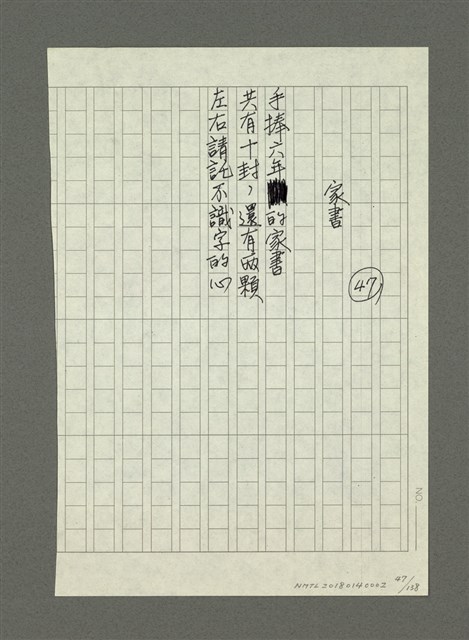 家書
47
手捧六年的家書
共有十封，還有兩顆
左右請託不識字的心
NO.
NMTL20180140002 47/138